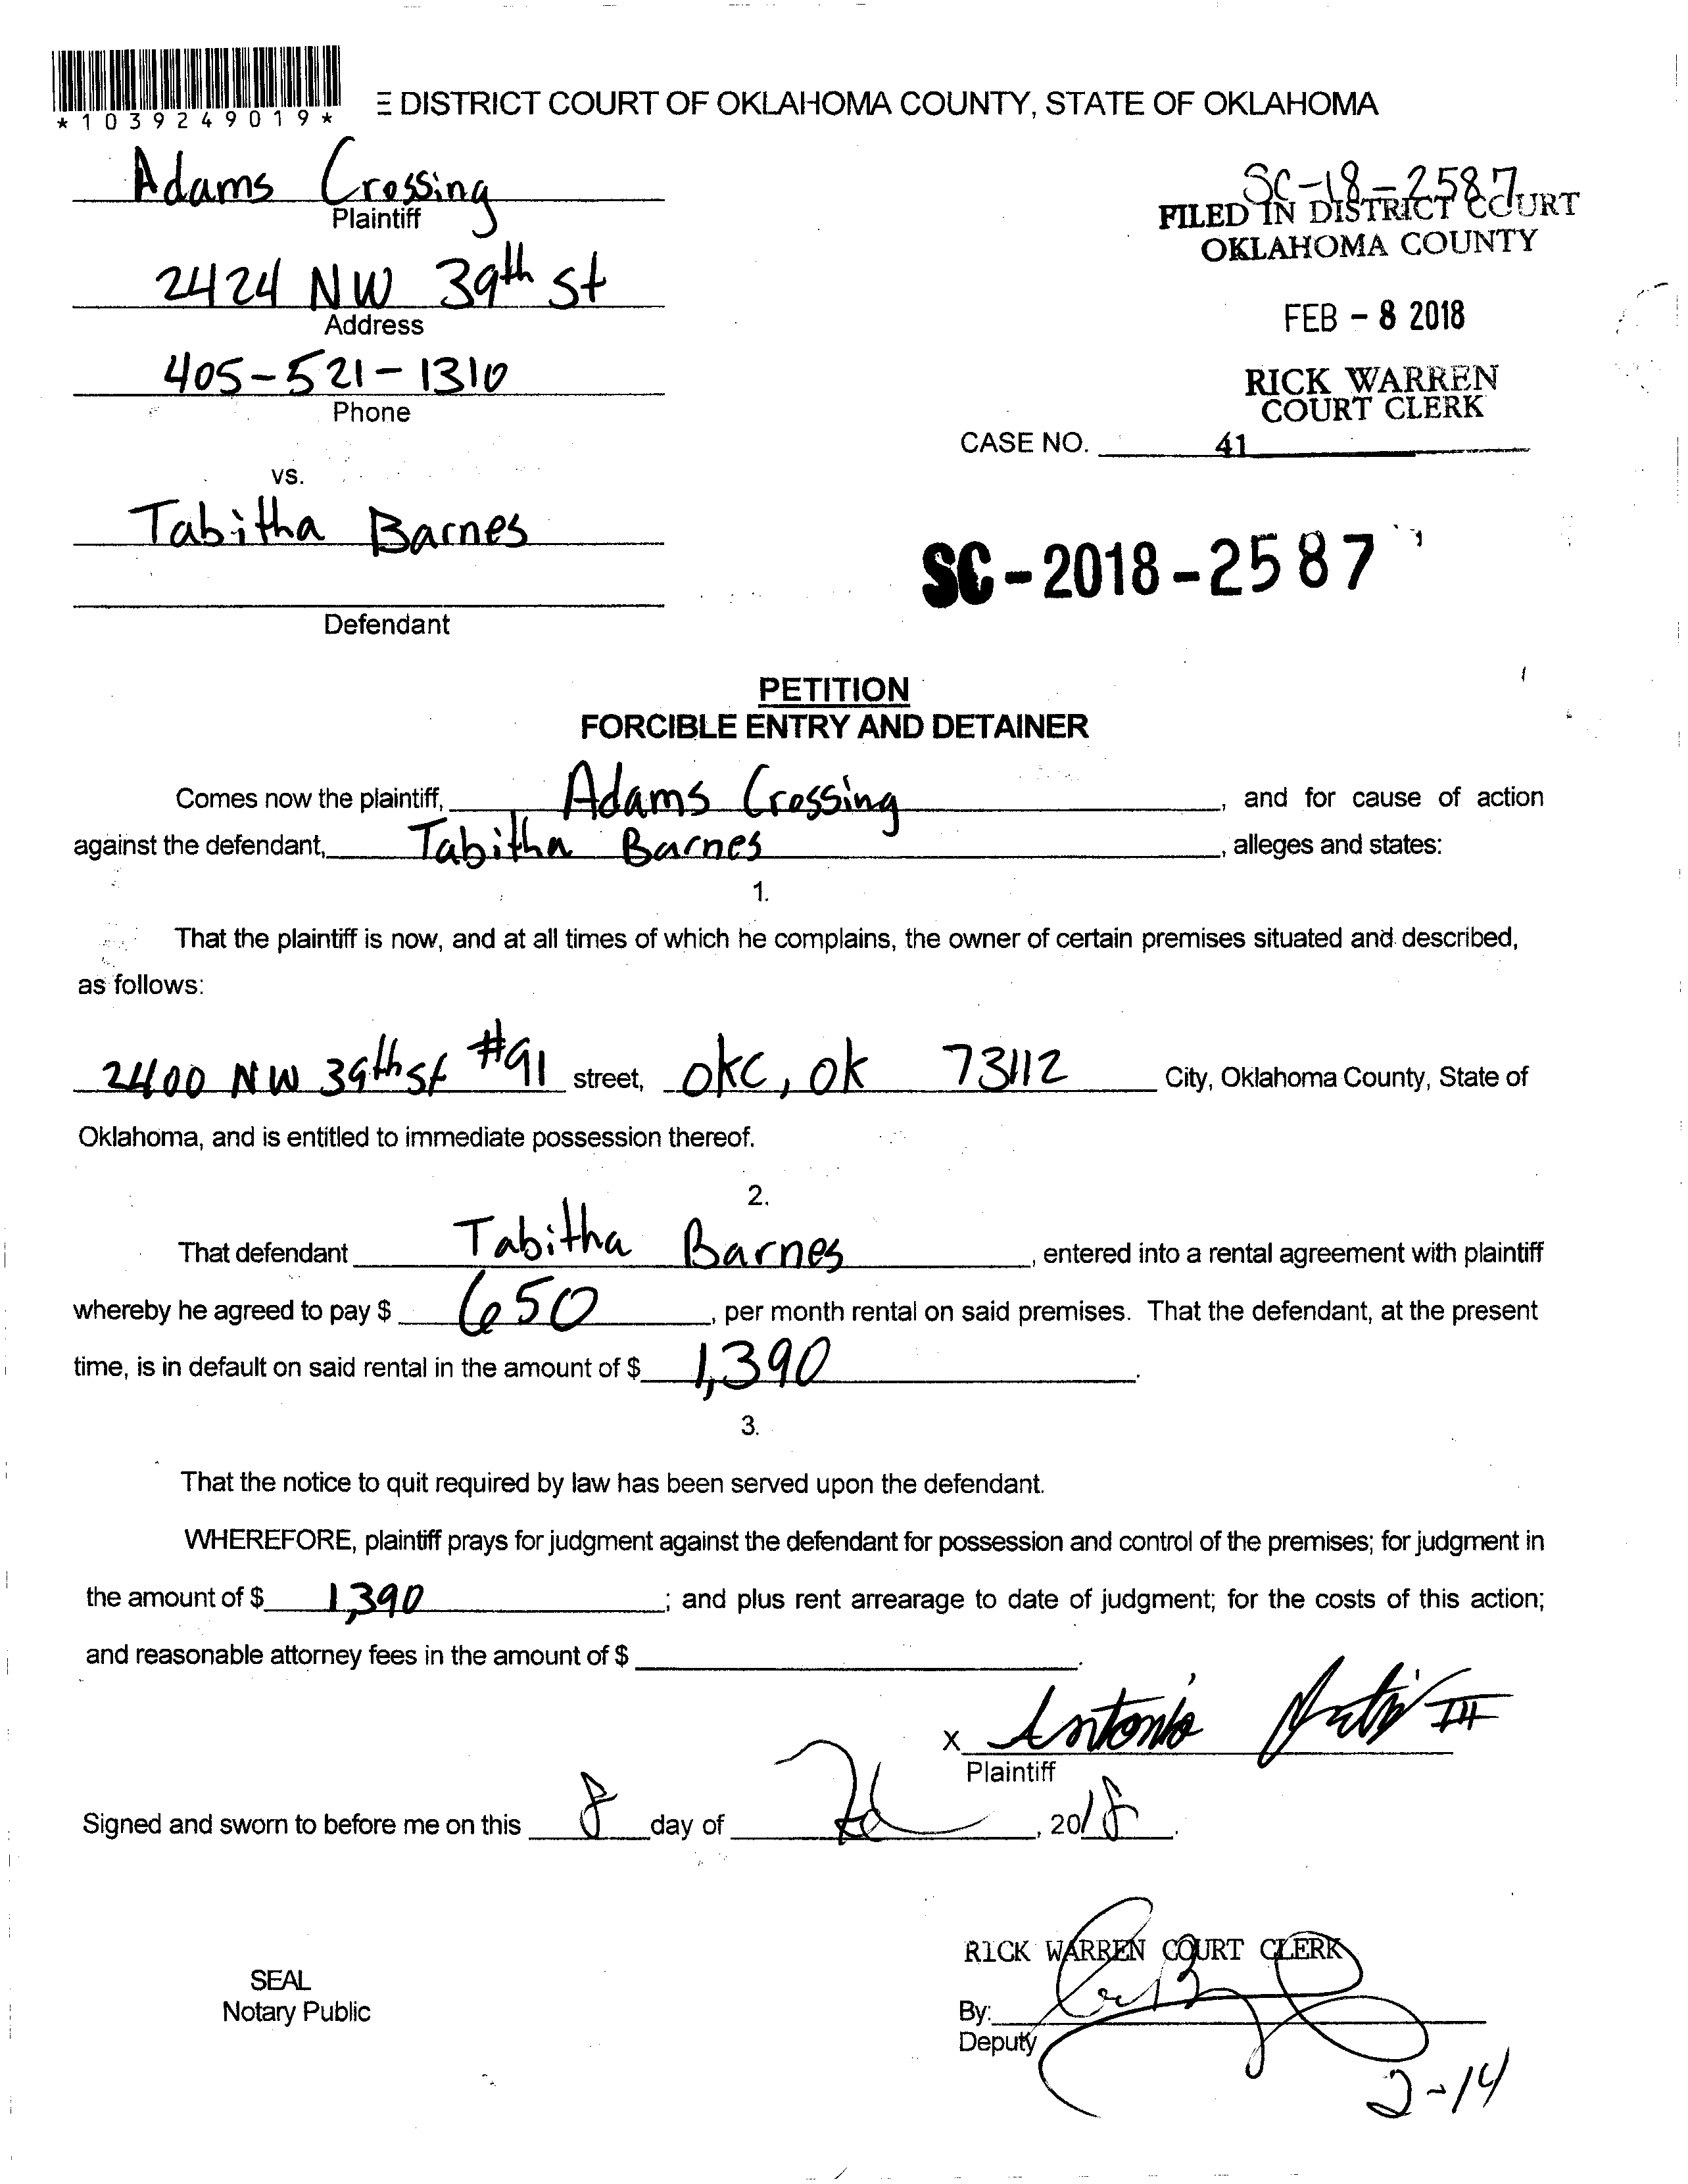 *1039249019*
E DISTRICT COURT OF OKLAHOMA COUNTY, STATE OF OKLAHOMA
Adams Crossing
Plaintiff
SC-18-2587
FILED IN DISTRICT COURT
OKLAHOMA COUNTY
2424 NW 39th St
Address
FEB - 8 2018
405-521-1310
Phone
RICK WARREN
COURT CLERK
CASE NO. 41
vs.
Tabitha Barnes
SC-2018-2587
Defendant
PETITION
FORCIBLE ENTRY AND DETAINER
Comes now the plaintiff, Adams Crossing, and for cause of action
against the defendant, Tabitha Barnes, alleges and states:
1.
That the plaintiff is now, and at all times of which he complains, the owner of certain premises situated and described,
as follows:
2400 NW 39th St #91 street, OKC, OK 73112 City, Oklahoma County, State of
Oklahoma, and is entitled to immediate possession thereof.
2.
That defendant Tabitha Barnes, entered into a rental agreement with plaintiff
whereby he agreed to pay $ 650, per month rental on said premises. That the defendant, at the present
time, is in default on said rental in the amount of $ 1,390.
3.
That the notice to quit required by law has been served upon the defendant.
WHEREFORE, plaintiff prays for judgment against the defendant for possession and control of the premises; for judgment in
the amount of $ 1,390; and plus rent arrearage to date of judgment; for the costs of this action;
and reasonable attorney fees in the amount of $ .
x Antonio III
Plaintiff
Signed and sworn to before me on this 8 day of , 2018.
RICK WARREN COURT CLERK
SEAL
Notary Public
By:
Deputy
2-14